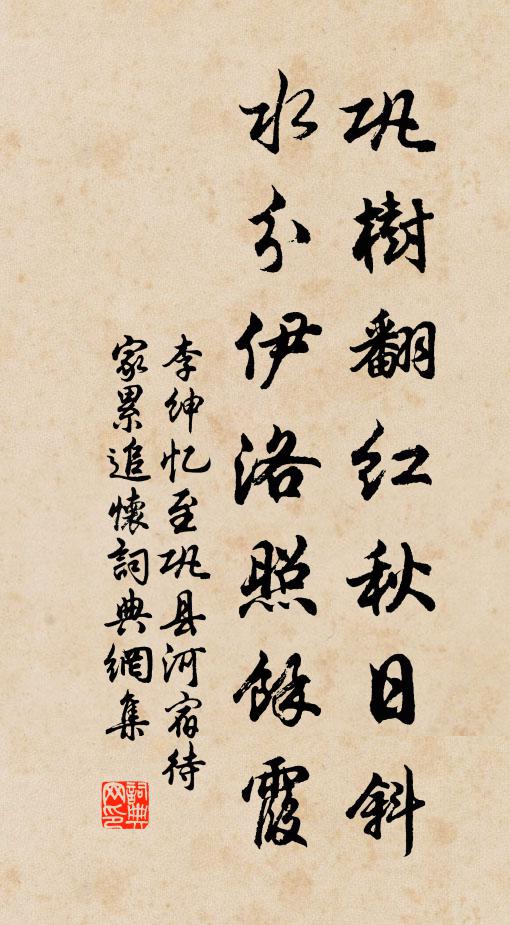 巩樹翻红秋日斜
水分伊洛照餘霞
李绅忆至巩县河宿待
家累追懷詞典網集
詞典网印